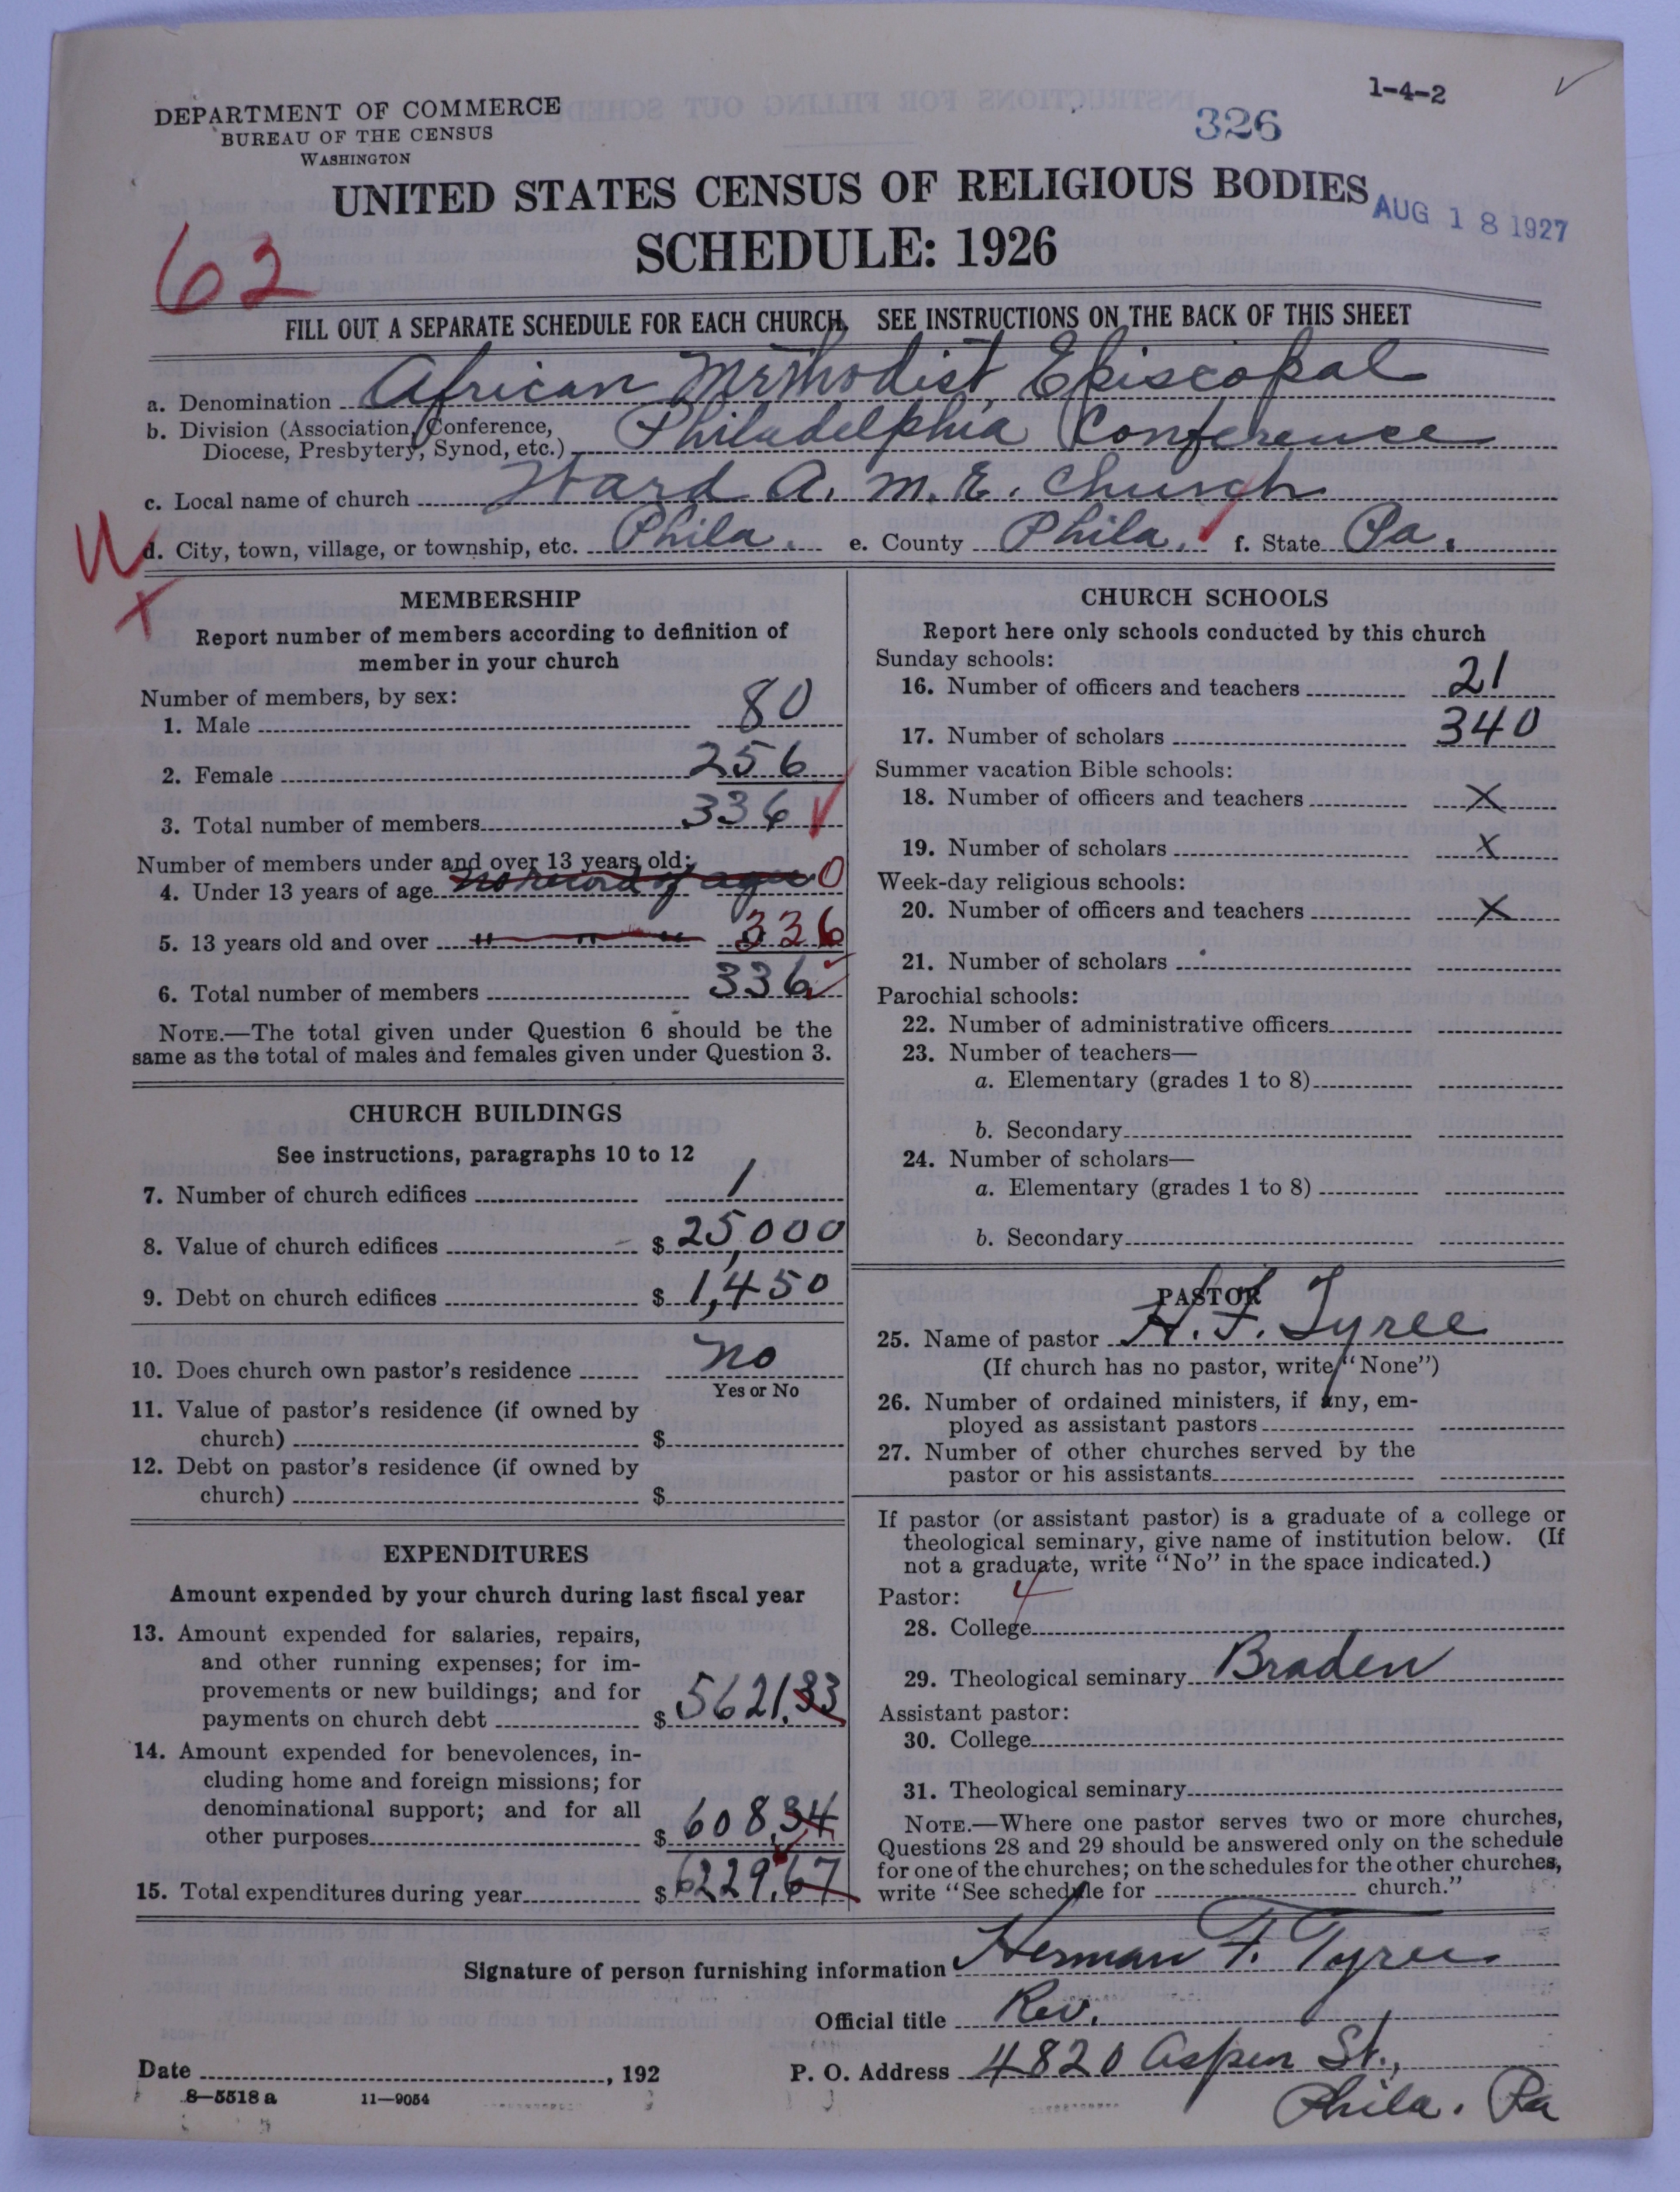 1-4-2
DEPARTMENT OF COMMERCE
BUREAU OF THE CENSUS
WASHINGTON
326
UNITED STATES CENSUS OF RELIGIOUS BODIES
AUG 18 1927
SCHEDULE: 1926
62
FILL OUT A SEPARATE SCHEDULE FOR EACH CHURCH. SEE INSTRUCTIONS ON THE BACK OF THIS SHEET
a. Denomination African Methodist Episcopal
b. Division (Association, Conference,
Diocese, Presbytery, Synod, etc.) Philadelphia Conference
c. Local name of church Ward A. M. E. Church
d. City, town, village, or township, etc. Phila. e. County Phila. f. State Pa.
MEMBERSHIP
Report number of members according to definition of
member in your church
Number of members, by sex:
1. Male 80
2. Female 256
3. Total number of members 336
Number of members under and over 13 years old:
4. Under 13 years of age no record of age 0
5. 13 years old and over " " " 336
6. Total number of members 336
NOTE.—The total given under Question 6 should be the
same as the total of males and females given under Question 3.
CHURCH BUILDINGS
See instructions, paragraphs 10 to 12
7. Number of church edifices 1
8. Value of church edifices $ 25,000
9. Debt on church edifices $ 1,450
10. Does church own pastor's residence no
Yes or No
11. Value of pastor's residence (if owned by
church) $
12. Debt on pastor's residence (if owned by
church) $
EXPENDITURES
Amount expended by your church during last fiscal year
13. Amount expended for salaries, repairs,
and other running expenses; for im-
provements or new buildings; and for
payments on church debt $ 5621.33
14. Amount expended for benevolences, in-
cluding home and foreign missions; for
denominational support; and for all
other purposes $ 608.34
15. Total expenditures during year $ 6229.67
CHURCH SCHOOLS
Report here only schools conducted by this church
Sunday schools:
16. Number of officers and teachers 21
17. Number of scholars 340
Summer vacation Bible schools:
18. Number of officers and teachers X
19. Number of scholars X
Week-day religious schools:
20. Number of officers and teachers X
21. Number of scholars
Parochial schools:
22. Number of administrative officers
23. Number of teachers—
a. Elementary (grades 1 to 8)
b. Secondary
24. Number of scholars—
a. Elementary (grades 1 to 8)
b. Secondary
PASTOR
25. Name of pastor H. F. Tyree
(If church has no pastor, write "None")
26. Number of ordained ministers, if any, em-
ployed as assistant pastors
27. Number of other churches served by the
pastor or his assistants
If pastor (or assistant pastor) is a graduate of a college or
theological seminary, give name of institution below. (If
not a graduate, write "No" in the space indicated.)
Pastor: 4
28. College
29. Theological seminary Braden
Assistant pastor:
30. College
31. Theological seminary
NOTE.—Where one pastor serves two or more churches,
Questions 28 and 29 should be answered only on the schedule
for one of the churches; on the schedules for the other churches,
write "See schedule for church."
Signature of person furnishing information Herman F. Tyree
Official title Rev.
Date , 192 P. O. Address 4820 Aspen St.,
8—5518 a 11—9054 Phila. Pa